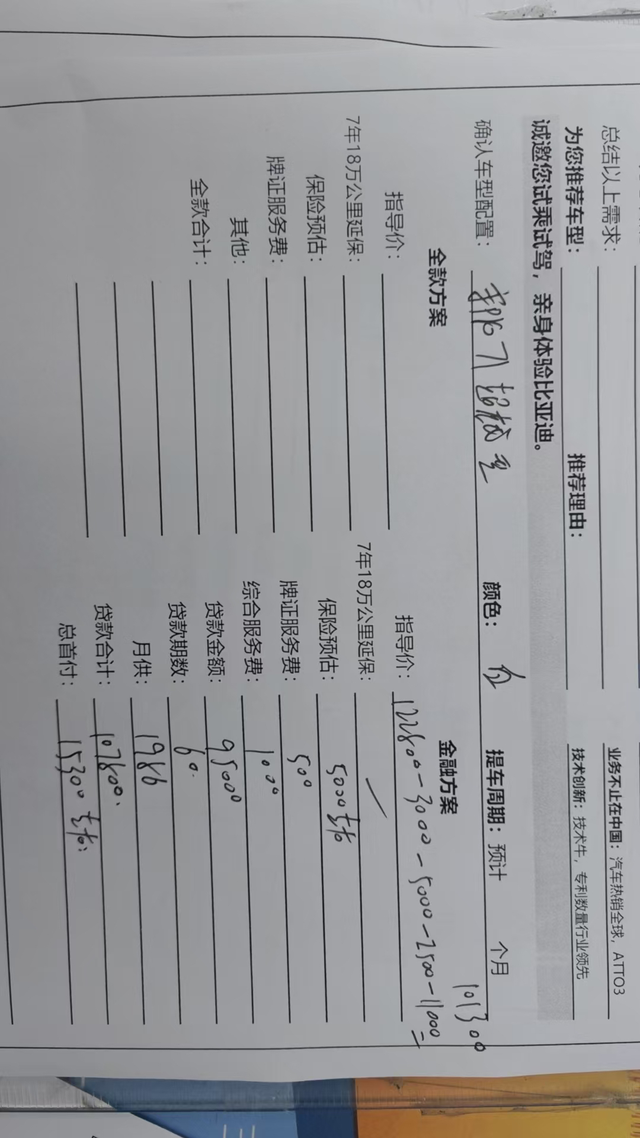 总结以上需求：
业务不止在中国：汽车热销全球，ATTO3
为您推荐车型： 推荐理由：
技术创新：技术牛，专利数量行业领先
诚邀您试乘试驾，亲身体验比亚迪。
确认车型配置： 颜色： 白 提车周期：预计 个月
全款方案
指导价：
7年18万公里延保：
保险预估：
牌证服务费：
其他：
全款合计：
金融方案
101300
指导价： 122800-3000-5000-2500-11000=
7年18万公里延保：
保险预估： 5000左右
牌证服务费： 500
综合服务费： 1000
贷款金额： 95000
贷款期数： 60.
月供： 1986
贷款合计： 107800.
总首付： 15300左右.